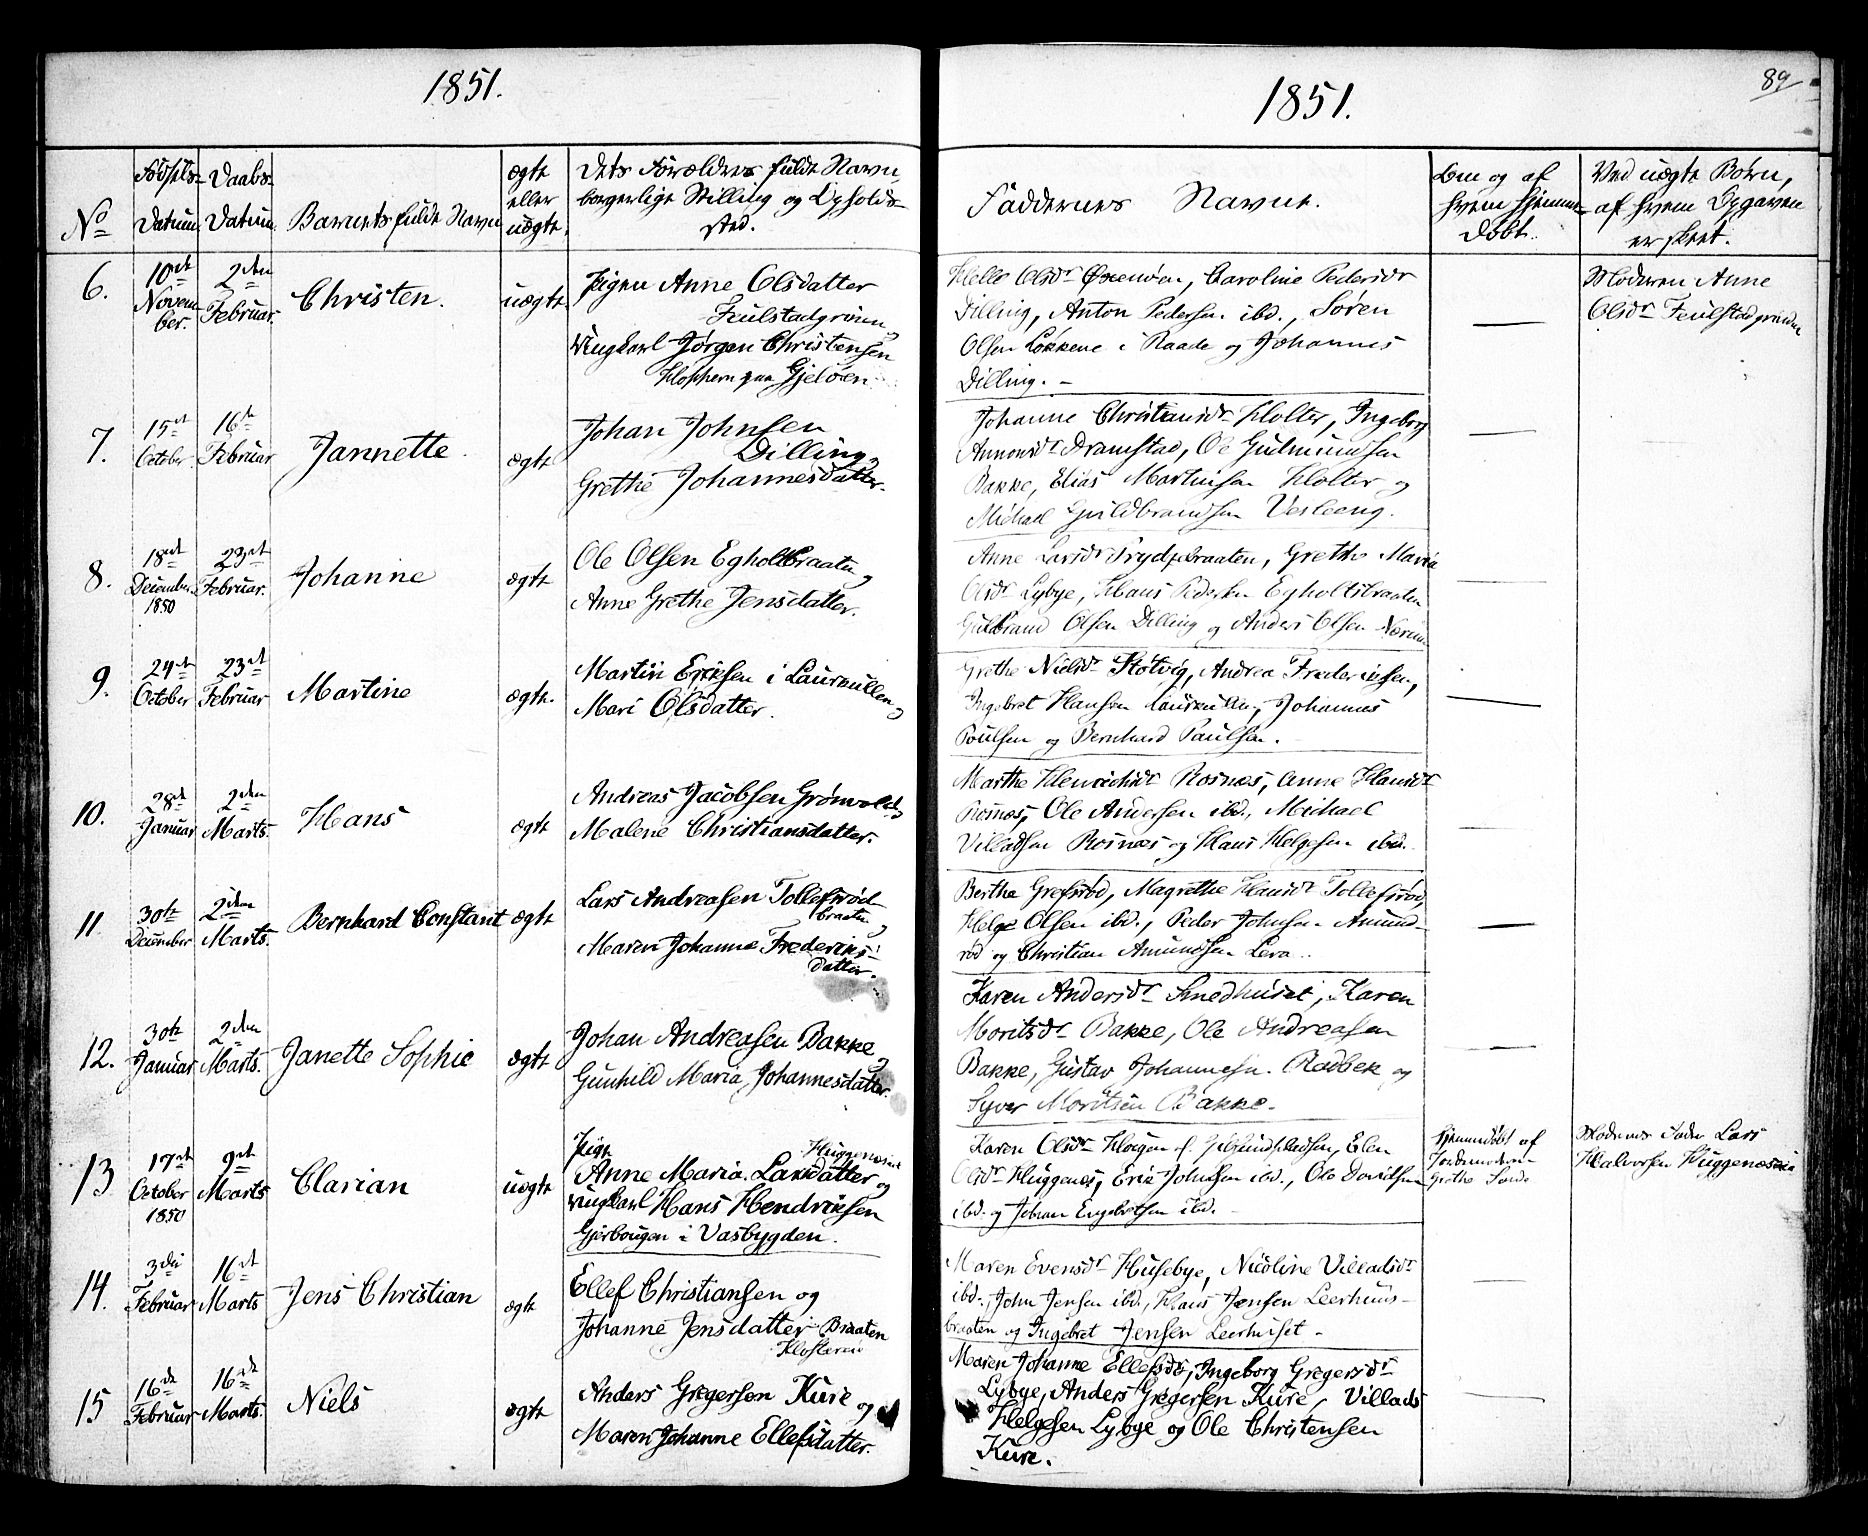 1851.
No
Fødsels-
Datum
Daabs-
Datum.
Barnets fulde Navn
ægte
eller
uægte.
Dets Forældres fulde Navn,
borgerlige Stilling og Opholds-
sted.
6.
10de
Novem-
ber.
2den
Februar.
Christen.
uægte.
Pigen Anne Olsdatter
og
Ungkarl Jørgen Christensen
paa Gjeløen.
7.
15de
October
16de
Februar
Jannette
ægte
Johan Johnsen
Dilling og
Grethe Johannesdatter.
8.
18de
December
1850
23de
Februar.
Johanne
ægte
Ole Olsen Egholtbraaten og
Anne Grethe Jensdatter.
9.
24de
October
23de
Februar
Martine
ægte.
Martin Eriksen i Laurkullen og
Mari Olsdatter.
10.
28de
Januar
2den
Marts.
Hans
ægte
Andreas Jacobsen Grønvold og
Malene Christiansdatter.
11.
30te
December
2den
Marts.
Bernhard Constant
ægte
Lars Andreasen Tollefsrød-
braaten og
Maren Johanne Frederiks-
datter.
12.
30te
Januar
2den
Marts.
Janette Sophie
ægte
Johan Andreasen Bakke og
Gunhild Maria Johannesdatter.
13
17de
October
1850
9de
Marts
Clarian
uægte
Pige Huggenæs
Anne Maria Larsdatter og
Ungkarl Hans Hendriksen
i Vasbygden.
14.
3die
Februar
16de
Marts
Jens Christian
ægte
Ellef Christiansen og
Johanne Jensdatter Braaten
15
16de
Februar
16de
Marts.
Niels
ægte
Anders Gregersen Kure og
Maren Johanne Ellefsdatter.
1851.
89
Faddernes Navne.
Om og af
hvem hjemme-
døbt.
Ved uægte Børn,
af hvem Opgaven
er skeet.
Helle Olsdr Caroline Pedersdr
Dilling, Anton Pedersen ibd., Søren
Olsen Løkkene i Raade og Johannes
Dilling. -
Moderen Anne
Olsdr
Johanne Christiansdr Holter, Ingeborg
Dramstad, Ole Gulmundsen
Bakke, Elias Martinsen Holter og
Michael Guldbrandsen Vesleeng.
Anne Larsdr Grethe Maria
Olsdr Lybye, Hans Pedersen Egholtbraaten
Guldbrand Olsen Dilling og Anders Olsen
Grethe Nielsdr Støtvig, Andrea Frederiksen,
Ingebret Hansen Laurkullen, Johannes
Poulsen og Bernhard Paulsen.
Marthe Rosnæs, Anne Hansdr
Rosnæs, Ole Andersen ibd., Michael
Villadsen Rosnæs og Hans Helgesen ibd.
Berthe Grefsrød, Magrethe Hansdr Tollefsrød,
Helge Olsen ibd., Peder Johnsen Amund-
rød og Christian Amundsen Lera.
Karen Andersdr Smedhuset, Karen
Moritsdr Bakke, Ole Andreasen
Bakke, Gustav Johannesen Rødbek og
Syver Moritsen Bakke.
Karen Olsdr Elen
Olsdr Huggenæs, Eric Johnsen ibd., Ole Davidsen
ibd. og Johan Engebretsen ibd.
Hjemmedøbt af
Jordemoderen
Grethe
Moderens Fader Lars
Halvorsen Huggenæs
Maren Evensdr Husebye, Nicoline Villadsdr
ibd., John Jensen ibd., Hans Jensen Leerhuus-
braaten og Ingebret Jensen Leerhuset -
Maren Johanne Ellefsdr, Ingeborg Gregersdr
Lybye, Anders Gregersen Kure, Villads
Helgesen Lybye og Ole Christensen
Kure.